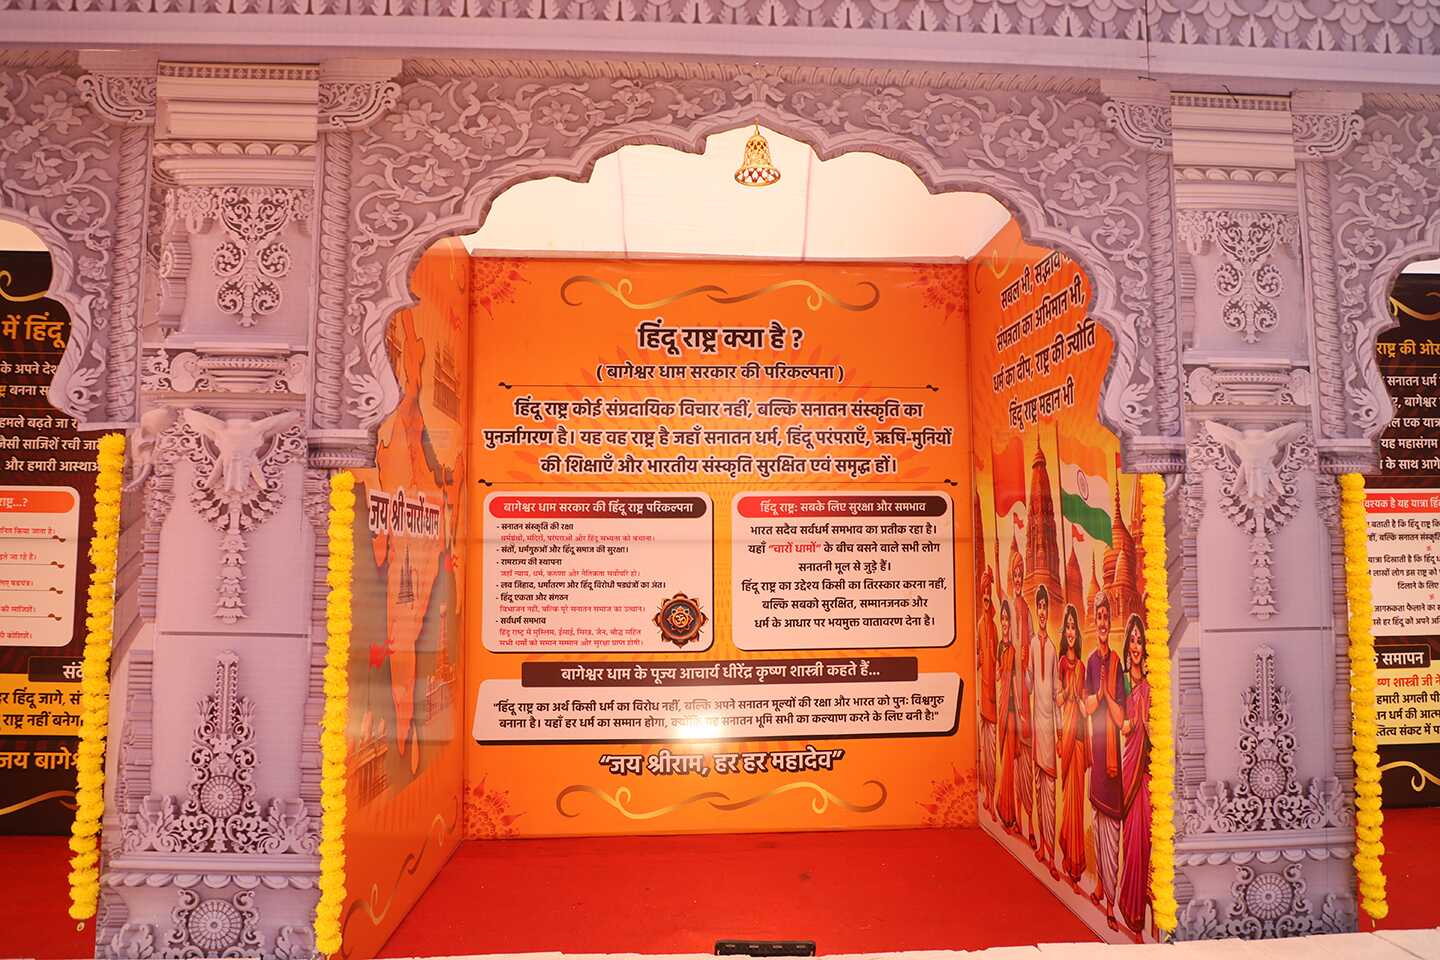 में हिंदू
के अपने देश
हमले बढ़ते जा र
और हमारी आस्था
संदे
राष्ट्र नहीं बनेगा
जय बागे
जय श्री चारों धाम
हिंदू राष्ट्र क्या है ?
( बागेश्वर धाम सरकार की परिकल्पना )
हिंदू राष्ट्र कोई संप्रदायिक विचार नहीं, बल्कि सनातन संस्कृति का
पुनर्जागरण है। यह वह राष्ट्र है जहाँ सनातन धर्म, हिंदू परंपराएँ, ऋषि-मुनियों
की शिक्षाएँ और भारतीय संस्कृति सुरक्षित एवं समृद्ध हों।
बागेश्वर धाम सरकार की हिंदू राष्ट्र परिकल्पना
- सनातन संस्कृति की रक्षा
धर्मग्रंथों, मंदिरों, परंपराओं और हिंदू सभ्यता को बचाना।
- संतों, धर्मगुरुओं और हिंदू समाज की सुरक्षा।
- रामराज्य की स्थापना
जहाँ न्याय, धर्म, करुणा और नैतिकता सर्वोपरि हो।
- लव जिहाद, धर्मांतरण और हिंदू विरोधी षडयंत्रों का अंत।
- हिंदू एकता और संगठन
विभाजन नहीं, बल्कि पूरे सनातन समाज का उत्थान।
- सर्वधर्म समभाव
हिंदू राष्ट्र में मुस्लिम, ईसाई, सिख, जैन, बौद्ध सहित
सभी धर्मों को समान सम्मान और सुरक्षा प्राप्त होगी।
हिंदू राष्ट्र: सबके लिए सुरक्षा और समभाव
भारत सदैव सर्वधर्म समभाव का प्रतीक रहा है।
यहाँ "चारों धामों" के बीच बसने वाले सभी लोग
सनातनी मूल से जुड़े हैं।
हिंदू राष्ट्र का उद्देश्य किसी का तिरस्कार करना नहीं,
बल्कि सबको सुरक्षित, सम्मानजनक और
धर्म के आधार पर भयमुक्त वातावरण देना है।
बागेश्वर धाम के पूज्य आचार्य धीरेंद्र कृष्ण शास्त्री कहते हैं...
"हिंदू राष्ट्र का अर्थ किसी धर्म का विरोध नहीं, बल्कि अपने सनातन मूल्यों की रक्षा और भारत को पुनः विश्वगुरु
बनाना है। यहाँ हर धर्म का सम्मान होगा, क्योंकि यह सनातन भूमि सभी का कल्याण करने के लिए बनी है!"
“जय श्रीराम, हर हर महादेव”
सबल भी, सद्भाव
संपन्नता का अभिमान भी,
धर्म का दीप, राष्ट्र की ज्योति
हिंदू राष्ट्र महान भी
राष्ट्र की ओर
सनातन धर्म
बागेश्वर
यह महासंगम
के साथ आगे
समापन
शास्त्री जी ने
हमारी अगली पी
धर्म की आत्म